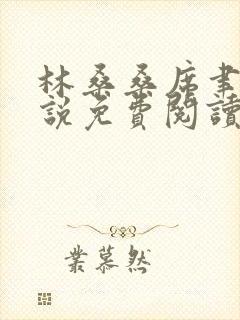 林桑桑席聿
説免費閱讀
業慕然